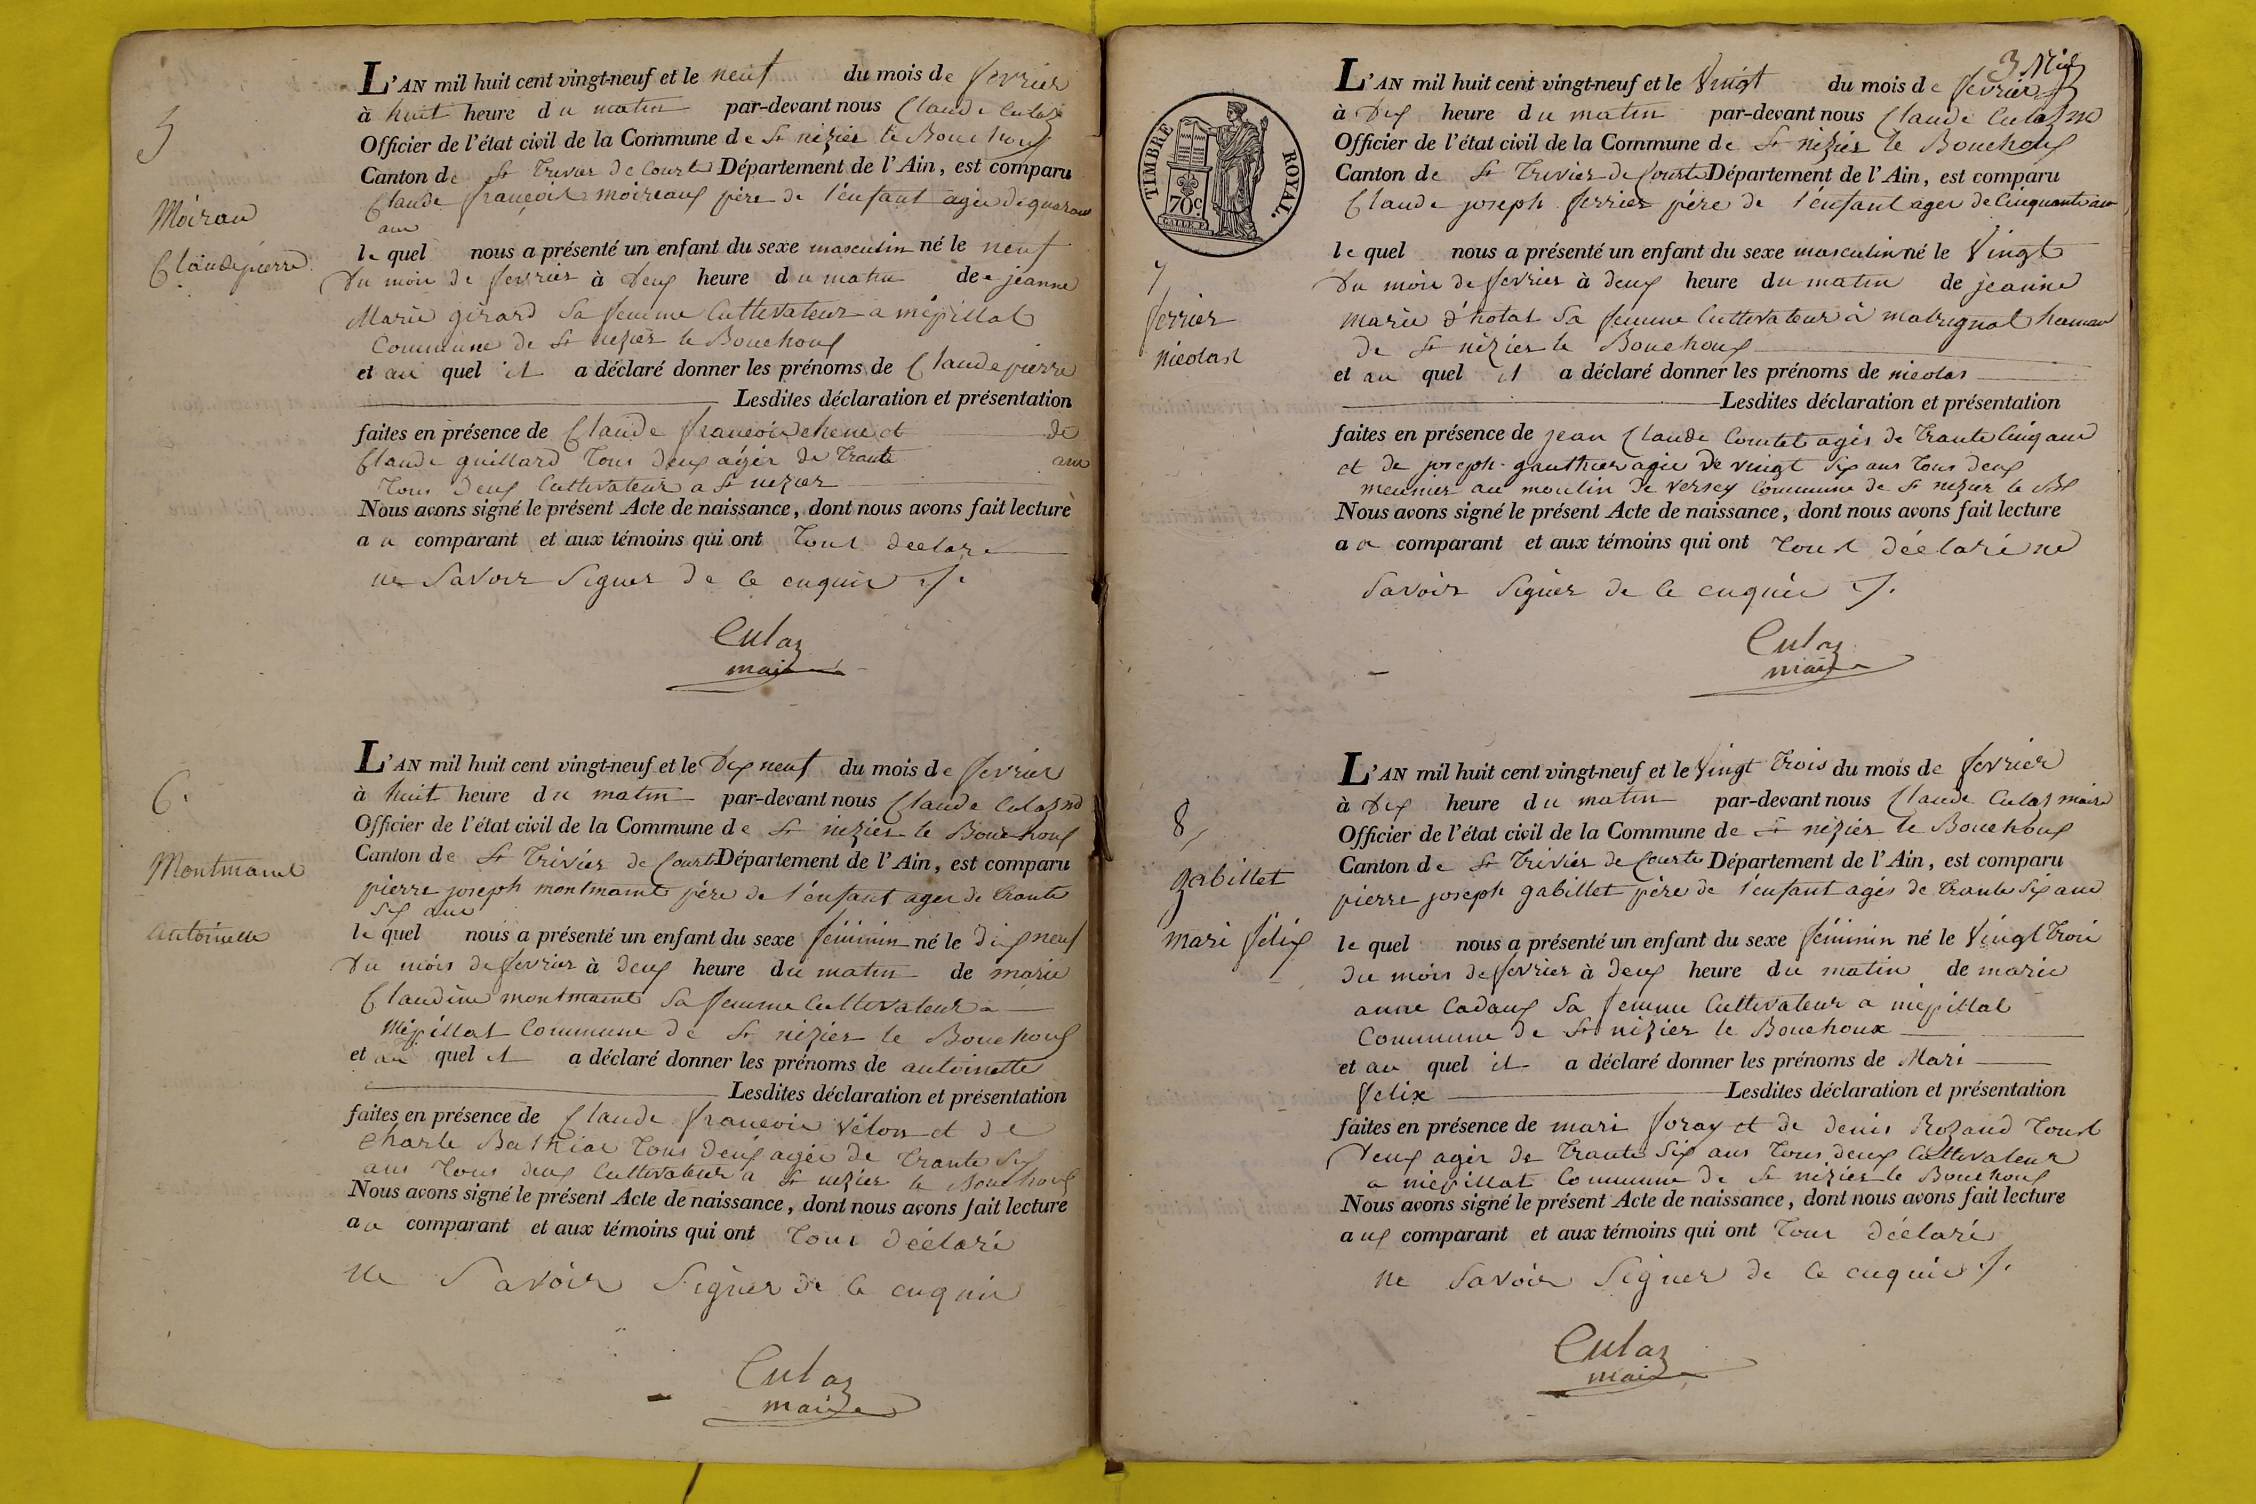 5
Moirau
Claude pierre
L'AN mil huit cent vingt-neuf et le neuf du mois de fevrier
à huit heure du matin par-devant nous Claude Culaz
Officier de l'état civil de la Commune de St nizier le Bouchoux
Canton de St Trivier de Courte Département de l'Ain, est comparu
Claude françois moireaux père de l'enfant agée de quarante
ans
le quel nous a présenté un enfant du sexe masculin né le neuf
Du mois de fevrier à Deux heure du matin de jeanne
Marie girard Sa femme Cultivateur a mépillat
Commune de St nizier le Bouchoux
et au quel il a déclaré donner les prénoms de Claude pierre
Lesdites déclaration et présentation
faites en présence de Claude françois chene et de
Claude guillard Tous deux agés de trante ans
Tous Deux Cultivateur a St nizier
Nous avons signé le présent Acte de naissance, dont nous avons fait lecture
a u comparant et aux témoins qui ont Tous déclaré
ne Savoir Signer de ce enquis
Culaz
maire
6
Montmain
antoinette
L'AN mil huit cent vingt-neuf et le Dix neuf du mois de fevrier
à huit heure du matin par-devant nous Claude Culaz
Officier de l'état civil de la Commune de St nizier le Bouchoux
Canton de St Trivier de Courte Département de l'Ain, est comparu
pierre joseph montmaint père de l'enfant ager de trante
Six ans
le quel nous a présenté un enfant du sexe féminin né le dix neuf
Du mois de fevrier à deux heure du matin de marie
Claudine montmaint Sa femme Cultivateur a
Mépillat Commune de St nizier le Bouchoux
et au quel il a déclaré donner les prénoms de antoinette
Lesdites déclaration et présentation
faites en présence de Claude françois et de
Charle Tous deux agée de trante Six
ans Tous deux Cultivateur a St nizier le Bouchoux
Nous avons signé le présent Acte de naissance, dont nous avons fait lecture
a u comparant et aux témoins qui ont Tous déclaré
ne Savoir Signer de ce enquis
Culaz
maire
3
TIMBRE ROYAL.
70c
7
ferrier
nicolas
L'AN mil huit cent vingt-neuf et le Vingt du mois de fevrier
à Dix heure du matin par-devant nous Claude Culaz
Officier de l'état civil de la Commune de St nizier le Bouchoux
Canton de St Trivier de Courte Département de l'Ain, est comparu
Claude joseph ferrier père de l'enfant ager de Cinquante ans
le quel nous a présenté un enfant du sexe masculin né le Vingt
Du mois de fevrier à deux heure du matin de jeanne
marie d'hotal Sa femme Cultivateur à malrignat hameau
de St nizier le Bouchoux
et au quel il a déclaré donner les prénoms de nicolas
Lesdites déclaration et présentation
faites en présence de jean Claude Comtet agés de trante Cinq ans
et de joseph gauthier agée de vingt Six ans Tous deux
meunier au moulin de versey Commune de St nizier le
Nous avons signé le présent Acte de naissance, dont nous avons fait lecture
a u comparant et aux témoins qui ont Tous déclaré ne
Savoir Signer de ce enquis
Culaz
maire
8
gabillet
mari félix
L'AN mil huit cent vingt-neuf et le Vingt trois du mois de fevrier
à Dix heure du matin par-devant nous Claude Culaz maire
Officier de l'état civil de la Commune de St nizier le Bouchoux
Canton de St Trivier de Courte Département de l'Ain, est comparu
pierre joseph gabillet père de l'enfant agés de trante Six ans
le quel nous a présenté un enfant du sexe féminin né le Vingt trois
du mois de fevrier à deux heure du matin de marie
anne Cadaux Sa femme Cultivateur a mépillat
Commune de St nizier le Bouchoux
et au quel il a déclaré donner les prénoms de Mari
felix Lesdites déclaration et présentation
faites en présence de mari foray et de denis Rozand Tous
Deux agés de trante Six ans Tous deux Cultivateur
a mépillat Commune de St nizier le Bouchoux
Nous avons signé le présent Acte de naissance, dont nous avons fait lecture
a ux comparant et aux témoins qui ont Tous déclaré
ne Savoir Signer de ce enquis
Culaz
maire